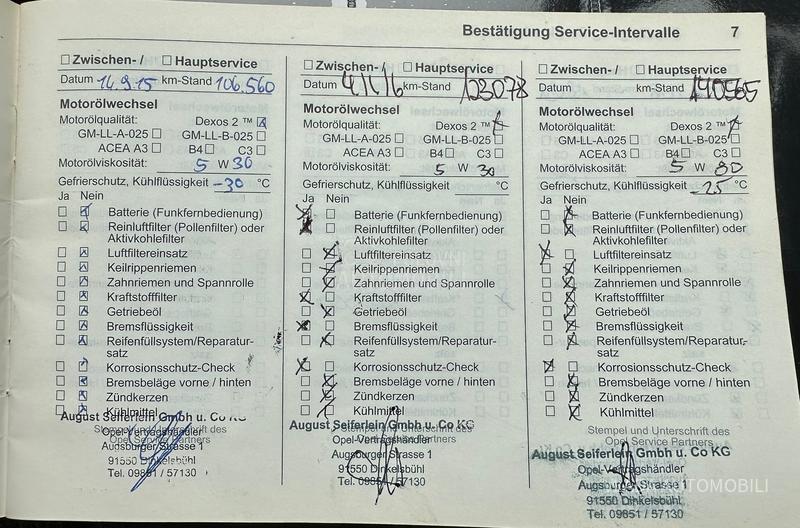 Bestätigung Service-Intervalle 7
Zwischen- / Hauptservice
Datum 14.9.15 km-Stand 106.560
Motorölwechsel
Motorölqualität: Dexos 2 ™
GM-LL-A-025 GM-LL-B-025
ACEA A3 B4 C3
Motorölviskosität: 5 W 30
Gefrierschutz, Kühlflüssigkeit -30 °C
Ja Nein
Batterie (Funkfernbedienung)
Reinluftfilter (Pollenfilter) oder
Aktivkohlefilter
Luftfiltereinsatz
Keilrippenriemen
Zahnriemen und Spannrolle
Kraftstofffilter
Getriebeöl
Bremsflüssigkeit
Reifenfüllsystem/Reparatur-
satz
Korrosionsschutz-Check
Bremsbeläge vorne / hinten
Zündkerzen
Kühlmittel
August Seiferlein Gmbh u. Co KG
Stempel und Unterschrift des
Opel-Vertragshändler
Opel Service Partners
Augsburger Strasse 1
91550 Dinkelsbühl
Tel. 09851 / 57130
Zwischen- / Hauptservice
Datum km-Stand 123078
Motorölwechsel
Motorölqualität: Dexos 2 ™
GM-LL-A-025 GM-LL-B-025
ACEA A3 B4 C3
Motorölviskosität: 5 W 30
Gefrierschutz, Kühlflüssigkeit °C
Ja Nein
Batterie (Funkfernbedienung)
Reinluftfilter (Pollenfilter) oder
Aktivkohlefilter
Luftfiltereinsatz
Keilrippenriemen
Zahnriemen und Spannrolle
Kraftstofffilter
Getriebeöl
Bremsflüssigkeit
Reifenfüllsystem/Reparatur-
satz
Korrosionsschutz-Check
Bremsbeläge vorne / hinten
Zündkerzen
Kühlmittel
August Seiferlein Gmbh u. Co KG
Stempel und Unterschrift des
Opel-Vertragshändler
Opel Service Partners
Augsburger Strasse 1
91550 Dinkelsbühl
Tel. 09851 / 57130
Zwischen- / Hauptservice
Datum km-Stand 140565
Motorölwechsel
Motorölqualität: Dexos 2 ™
GM-LL-A-025 GM-LL-B-025
ACEA A3 B4 C3
Motorölviskosität: 5 W 30
Gefrierschutz, Kühlflüssigkeit -25 °C
Ja Nein
Batterie (Funkfernbedienung)
Reinluftfilter (Pollenfilter) oder
Aktivkohlefilter
Luftfiltereinsatz
Keilrippenriemen
Zahnriemen und Spannrolle
Kraftstofffilter
Getriebeöl
Bremsflüssigkeit
Reifenfüllsystem/Reparatur-
satz
Korrosionsschutz-Check
Bremsbeläge vorne / hinten
Zündkerzen
Kühlmittel
Stempel und Unterschrift des
Opel Service Partners
August Seiferlein Gmbh u. Co KG
Opel-Vertragshändler
Augsburger Strasse 1
91550 Dinkelsbühl
Tel. 09851 / 57130